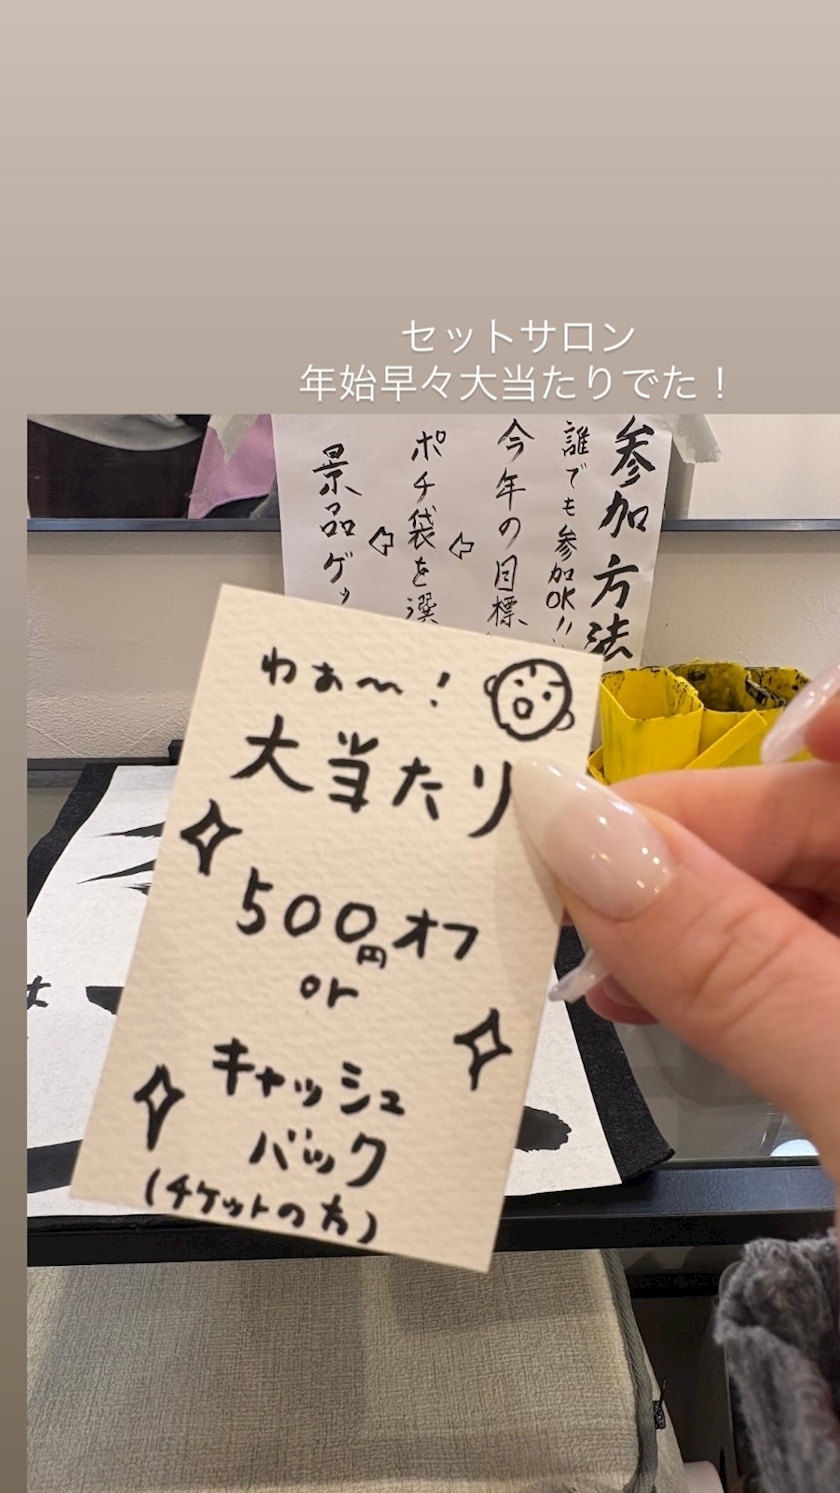 セットサロン
年始早々大当たりでた！
参加方法
誰でも参加OK!!
今年の目標
ポチ袋を選
景品ゲッ
わぁ〜！
大当たり
500円オフ
or
キャッシュ
バック
(チケットの方)